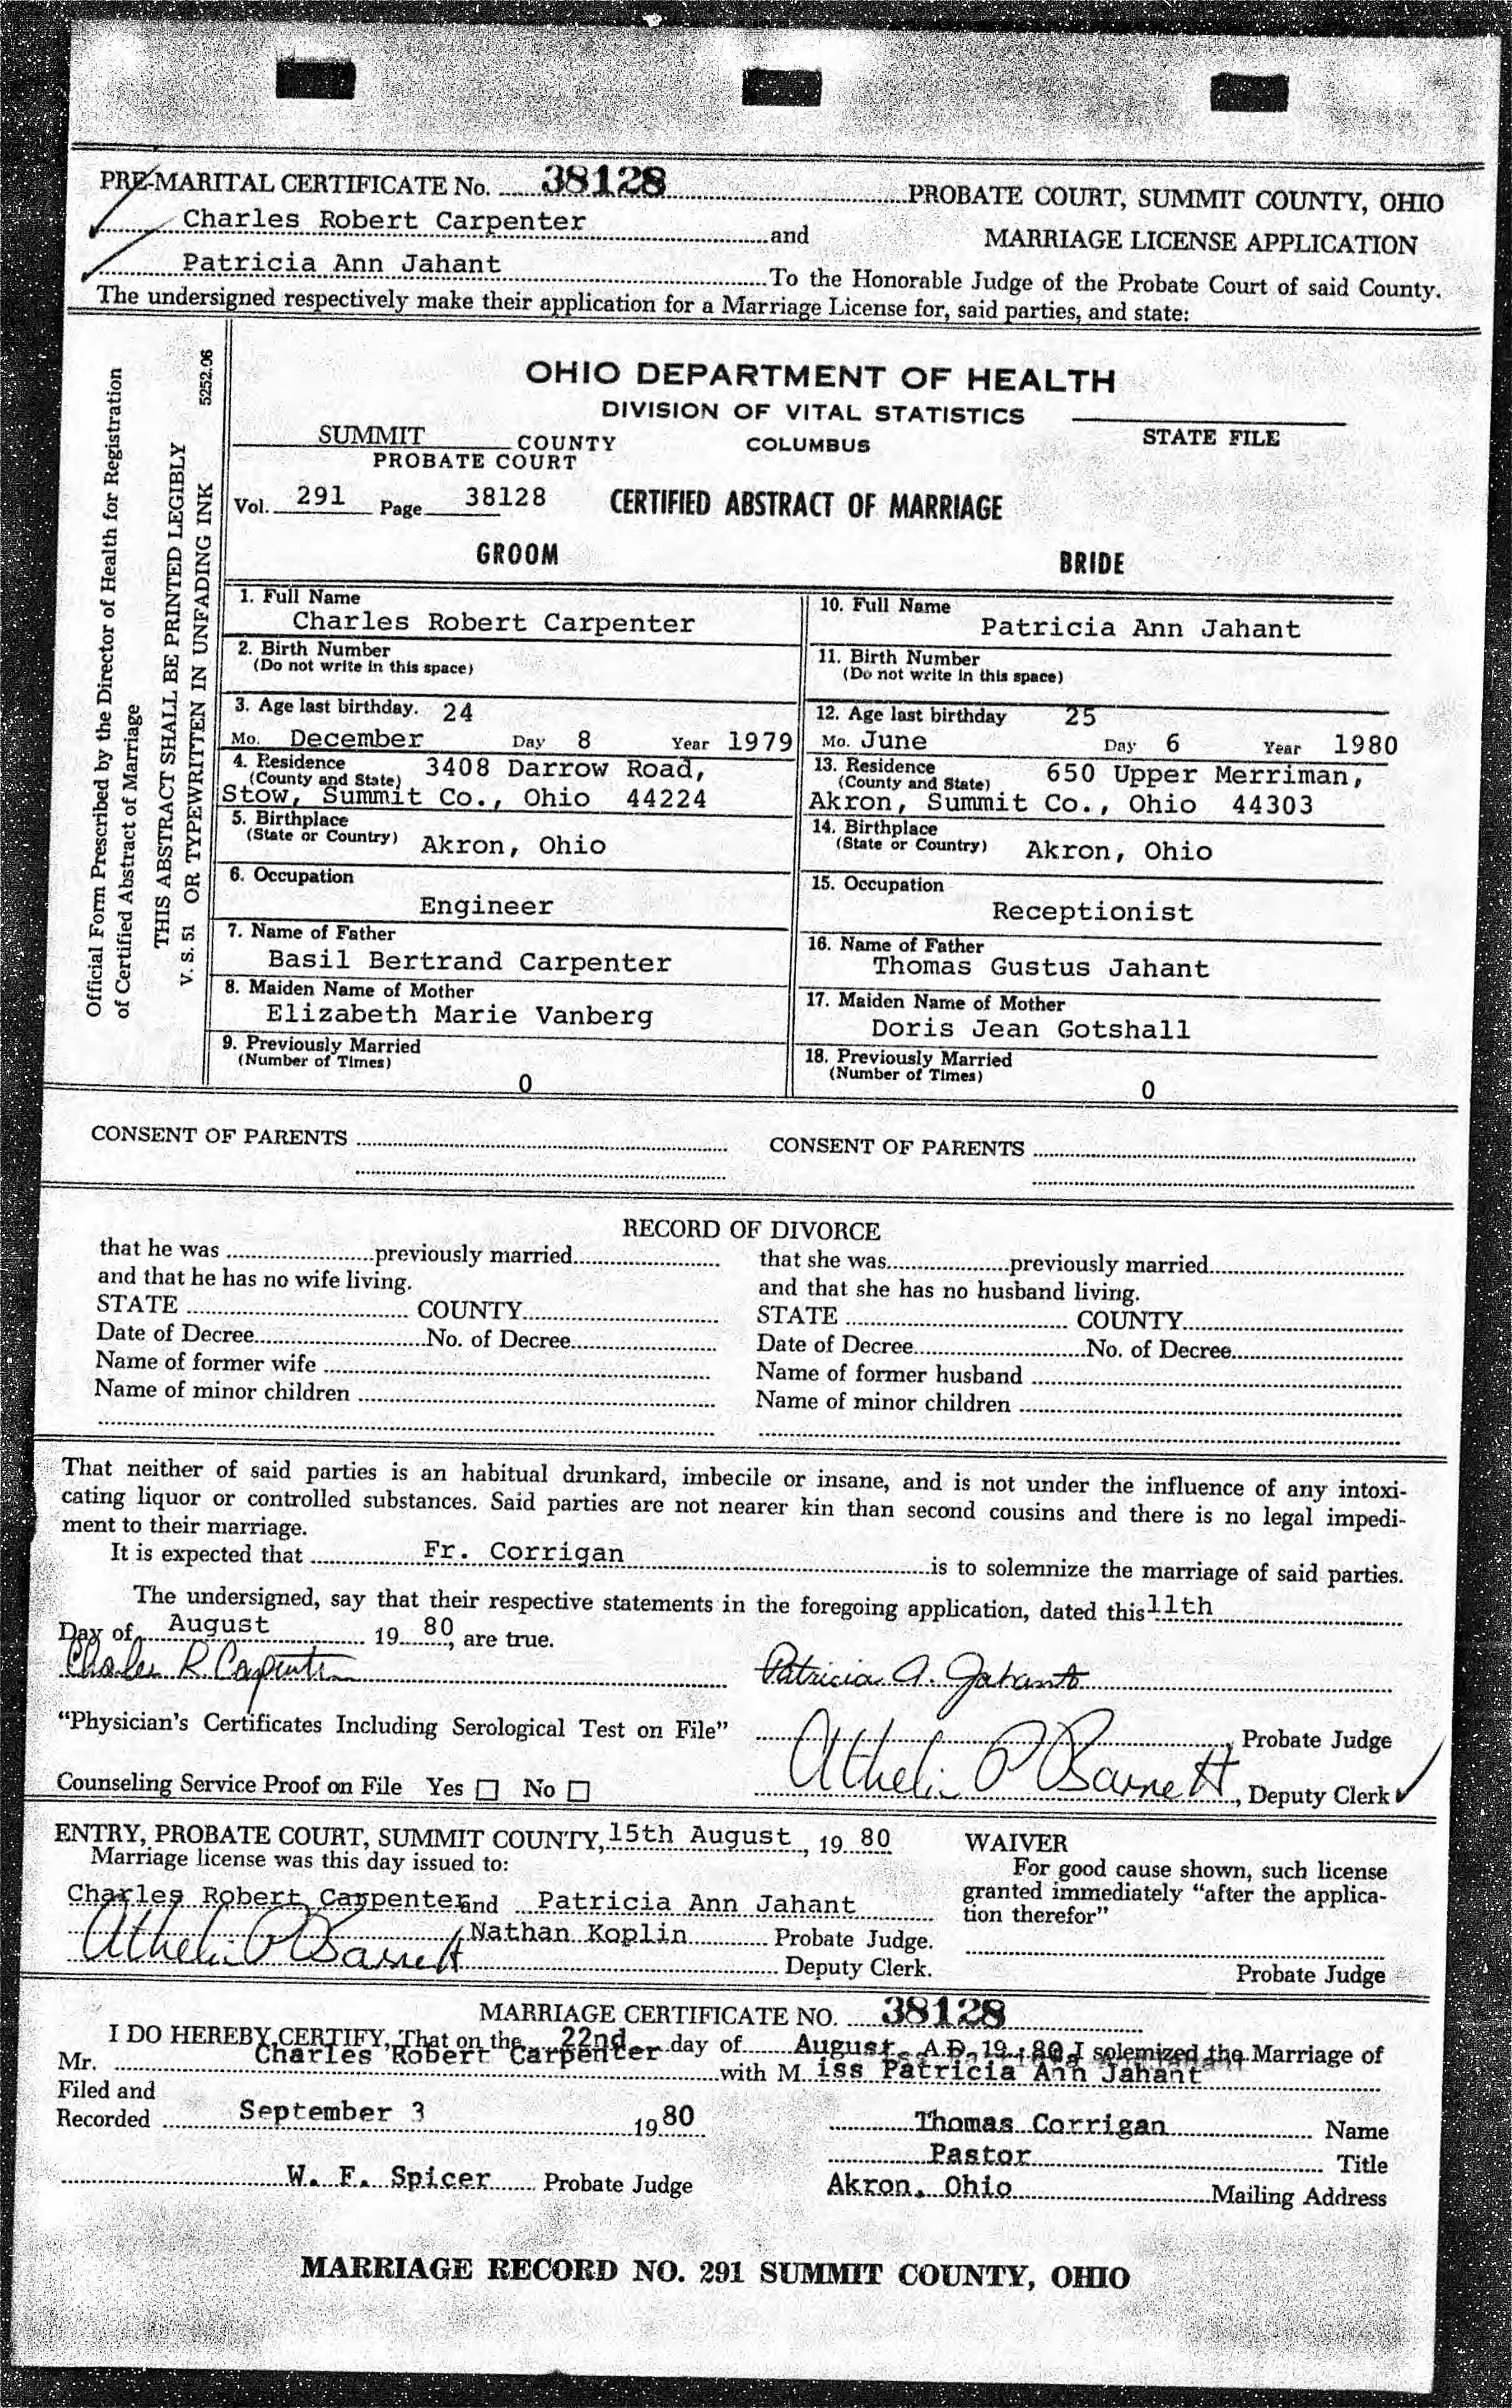 PRE-MARITAL CERTIFICATE No. 38128 PROBATE COURT, SUMMIT COUNTY, OHIO
Charles Robert Carpenter and MARRIAGE LICENSE APPLICATION
Patricia Ann Jahant To the Honorable Judge of the Probate Court of said County.
The undersigned respectively make their application for a Marriage License for, said parties, and state:
Official Form Prescribed by the Director of Health for Registration
of Certified Abstract of Marriage
THIS ABSTRACT SHALL BE PRINTED LEGIBLY
V. S. 51 OR TYPEWRITTEN IN UNFADING INK 5252.06
OHIO DEPARTMENT OF HEALTH
DIVISION OF VITAL STATISTICS
SUMMIT COUNTY COLUMBUS STATE FILE
PROBATE COURT
Vol. 291 Page 38128 CERTIFIED ABSTRACT OF MARRIAGE
GROOM BRIDE
1. Full Name
Charles Robert Carpenter
10. Full Name
Patricia Ann Jahant
2. Birth Number
(Do not write in this space)
11. Birth Number
(Do not write in this space)
3. Age last birthday. 24
Mo. December Day 8 Year 1979
12. Age last birthday 25
Mo. June Day 6 Year 1980
4. Residence
(County and State) 3408 Darrow Road,
Stow, Summit Co., Ohio 44224
13. Residence
(County and State) 650 Upper Merriman,
Akron, Summit Co., Ohio 44303
5. Birthplace
(State or Country) Akron, Ohio
14. Birthplace
(State or Country) Akron, Ohio
6. Occupation
Engineer
15. Occupation
Receptionist
7. Name of Father
Basil Bertrand Carpenter
16. Name of Father
Thomas Gustus Jahant
8. Maiden Name of Mother
Elizabeth Marie Vanberg
17. Maiden Name of Mother
Doris Jean Gotshall
9. Previously Married
(Number of Times)
0
18. Previously Married
(Number of Times)
0
CONSENT OF PARENTS CONSENT OF PARENTS
RECORD OF DIVORCE
that he was previously married
and that he has no wife living.
STATE COUNTY
Date of Decree No. of Decree
Name of former wife
Name of minor children
that she was previously married
and that she has no husband living.
STATE COUNTY
Date of Decree No. of Decree
Name of former husband
Name of minor children
That neither of said parties is an habitual drunkard, imbecile or insane, and is not under the influence of any intoxi-
cating liquor or controlled substances. Said parties are not nearer kin than second cousins and there is no legal impedi-
ment to their marriage.
It is expected that Fr. Corrigan is to solemnize the marriage of said parties.
The undersigned, say that their respective statements in the foregoing application, dated this 11th
Day of August 19 80, are true.
Charles R. Carpenter Patricia A. Jahant
"Physician's Certificates Including Serological Test on File" , Probate Judge
Counseling Service Proof on File Yes ☐ No ☐ P Barnett, Deputy Clerk
ENTRY, PROBATE COURT, SUMMIT COUNTY, 15th August, 19 80
Marriage license was this day issued to:
Charles Robert Carpenter and Patricia Ann Jahant
Nathan Koplin Probate Judge.
P Barnett Deputy Clerk.
WAIVER
For good cause shown, such license
granted immediately "after the applica-
tion therefor"
Probate Judge
MARRIAGE CERTIFICATE NO. 38128
I DO HEREBY CERTIFY, That on the 22nd day of August A.D. 19 80 I solemized the Marriage of
Mr. Charles Robert Carpenter with Miss Patricia Ann Jahant
Filed and
Recorded September 3 19 80
Thomas Corrigan Name
Pastor Title
W. F. Spicer Probate Judge
Akron, Ohio Mailing Address
MARRIAGE RECORD NO. 291 SUMMIT COUNTY, OHIO